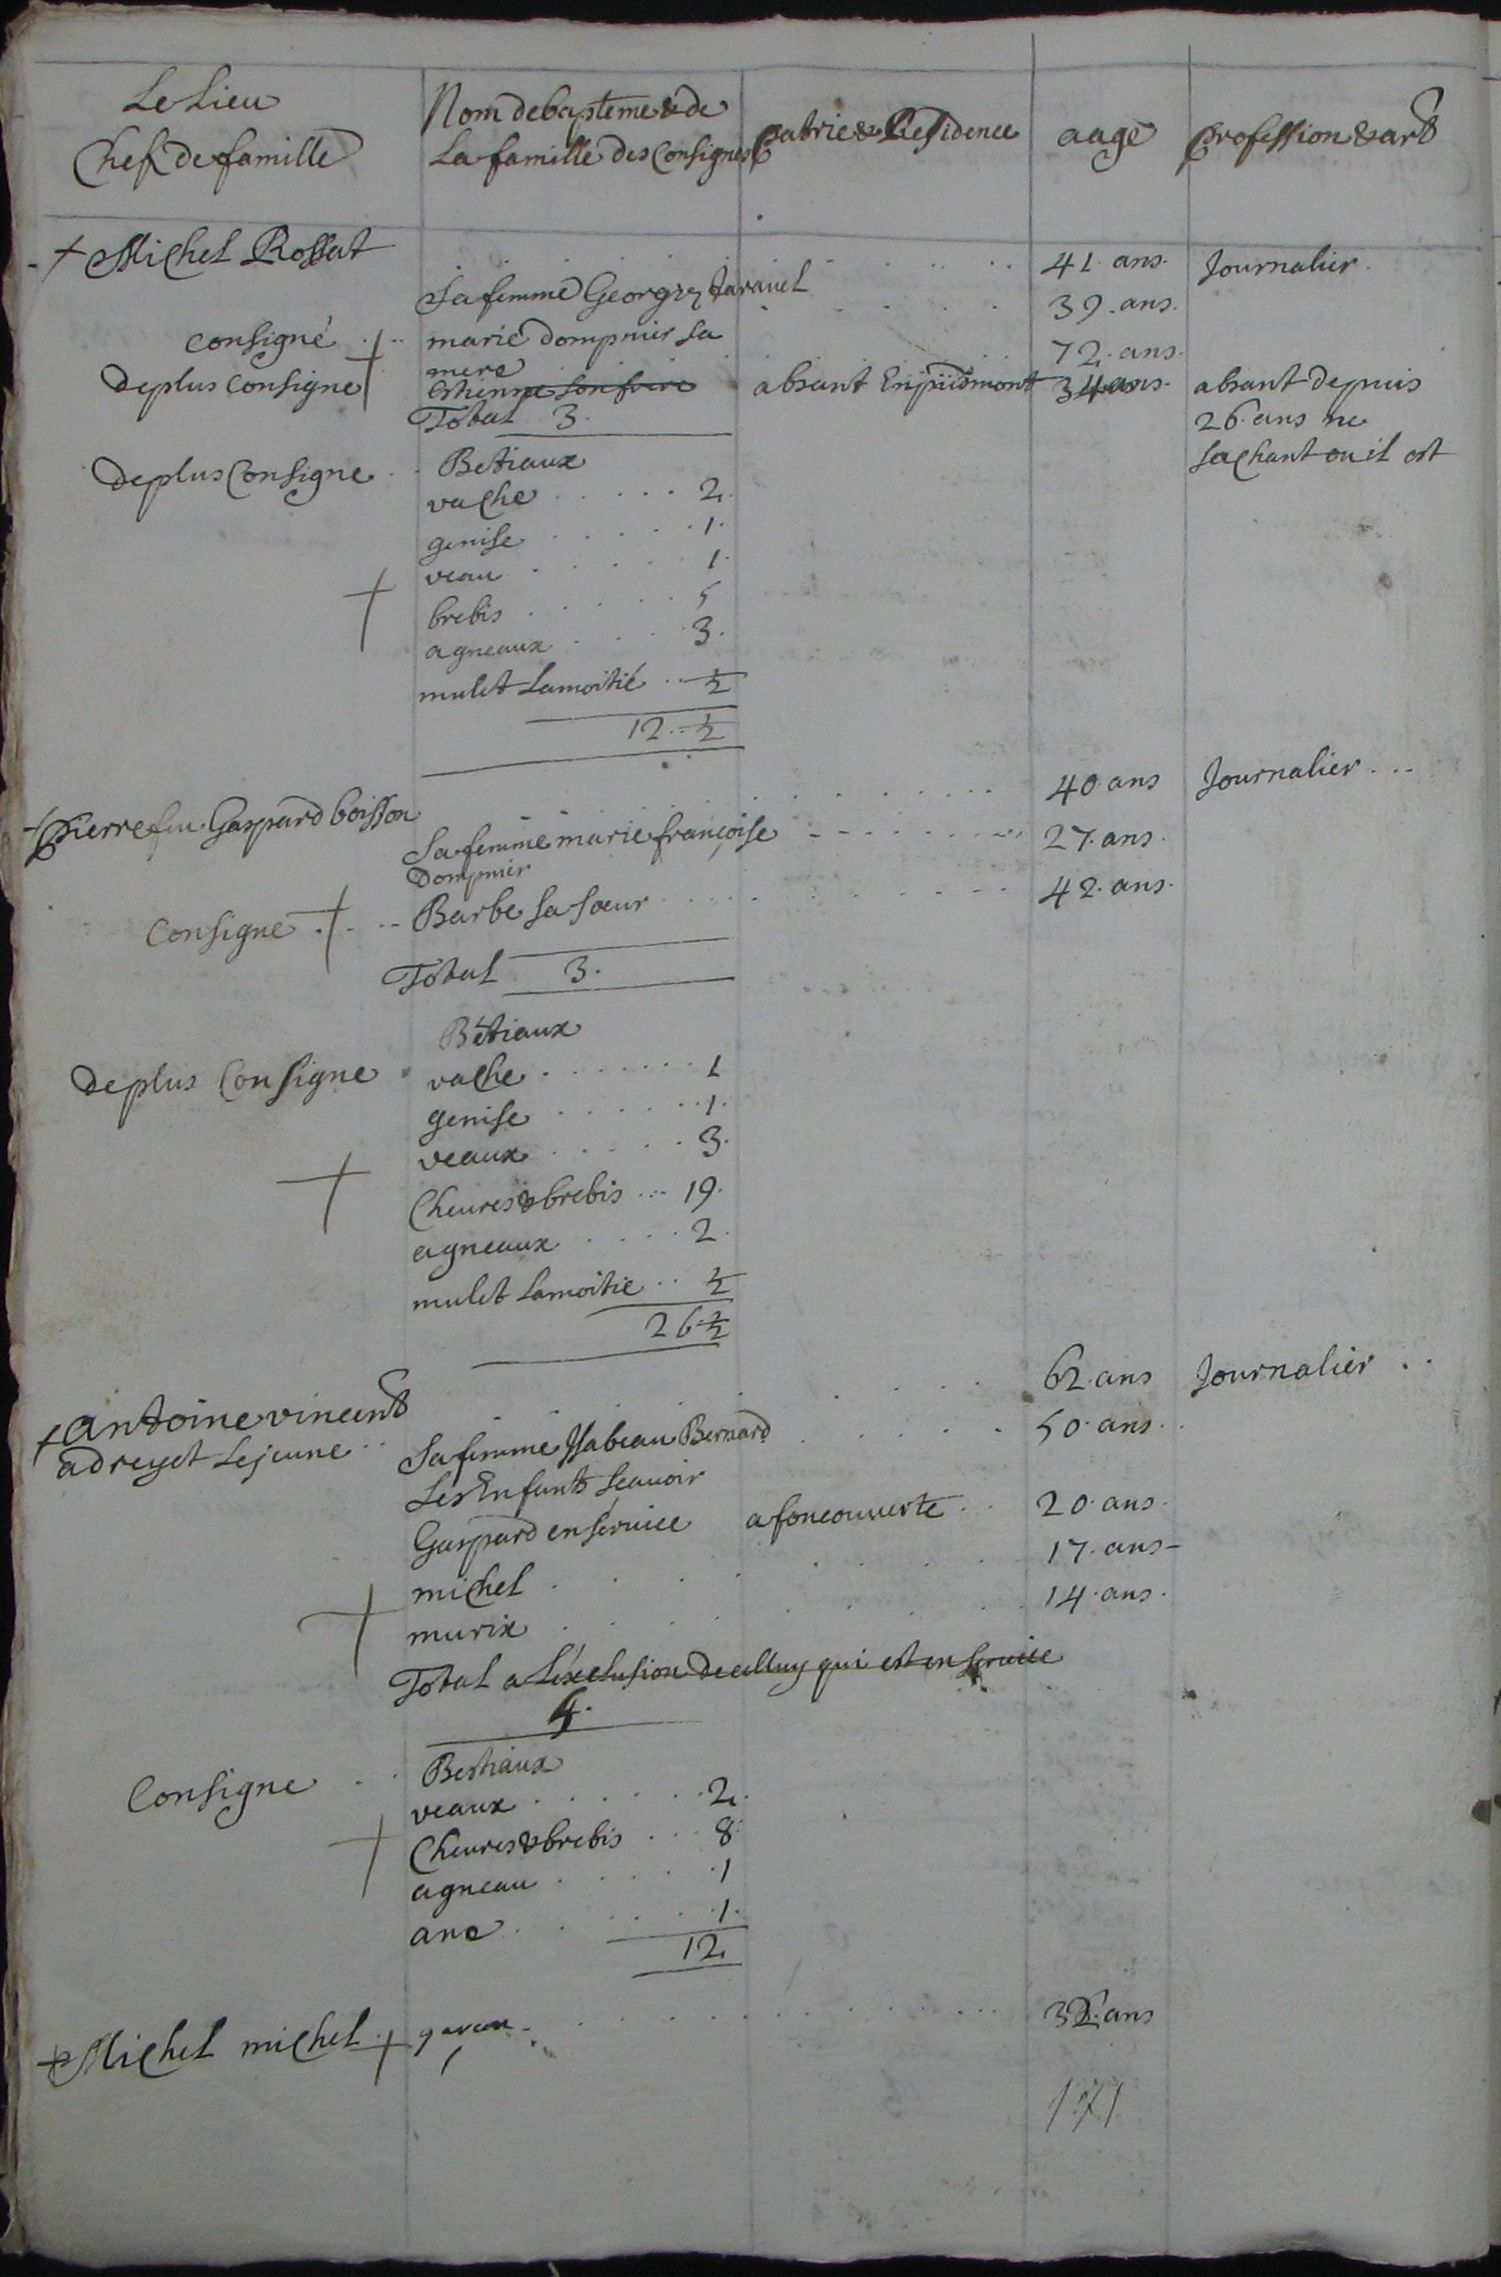 Le Lieu
Chef de famille
Nom de bapteme & de
La famille des Consignes
Patrie & Residence
aage
profession & art
+ Michel Rossat
41. ans.
Journalier.
Sa femme Georgie Jaravel
39. ans.
consigné
marie dompnier sa
mere
72. ans.
De plus Consigne
Estienne son frere
absant En piidmont
34 ans.
absant depuis
26. ans ne
sachant ou il est
Total 3.
De plus Consigne
Betiaux
vache 2.
genise 1.
veau 1.
brebis 5
agneaux 3.
mulet La moitié ½
12. ½
+ Pierre feu Gaspard boisson
40. ans
Journalier
Sa femme marie françoise
Dompnier
27. ans.
Consigne
Barbe sa sœur
42. ans.
Total 3.
De plus Consigne
Bétiaux
vache 1
genise 1.
veaux 3.
Cheures & brebis 19.
agneaux 2.
mulet La moitie ½
26 ½
+ antoine vincent
adreyet Le jeune
62. ans
Journalier
Sa femme Isabeau Bernard
50. ans.
Les Enfants scauoir
Gaspard en seruice
a foncouverte
20. ans.
michel
17. ans
marie
14. ans.
Total a L'exclusion de celluy qui est en seruice
Consigne
Bestiaux
veaux 2.
Cheures & brebis 8
agneau 1
ane 1.
12
+ Michel michel
garcon
ans
171